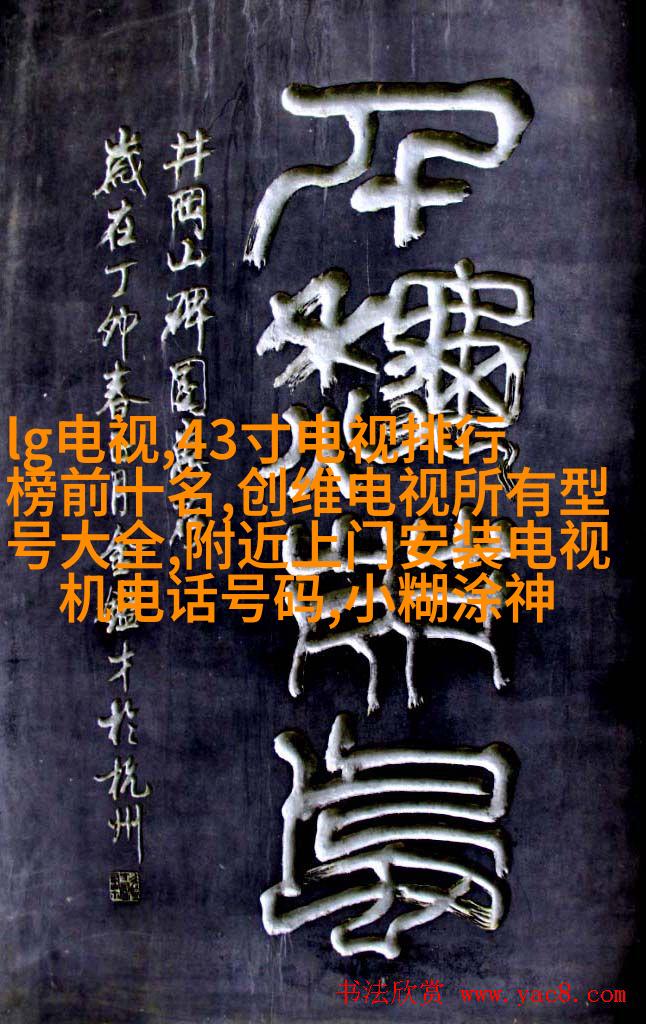 井岡山碑園
歲在丁卯春月金鑑才於杭州
lg电视,43寸电视排行
榜前十名,创维电视所有型
号大全,附近上门安装电视
机电话号码,小糊涂神
书法欣赏 www.yac8.com